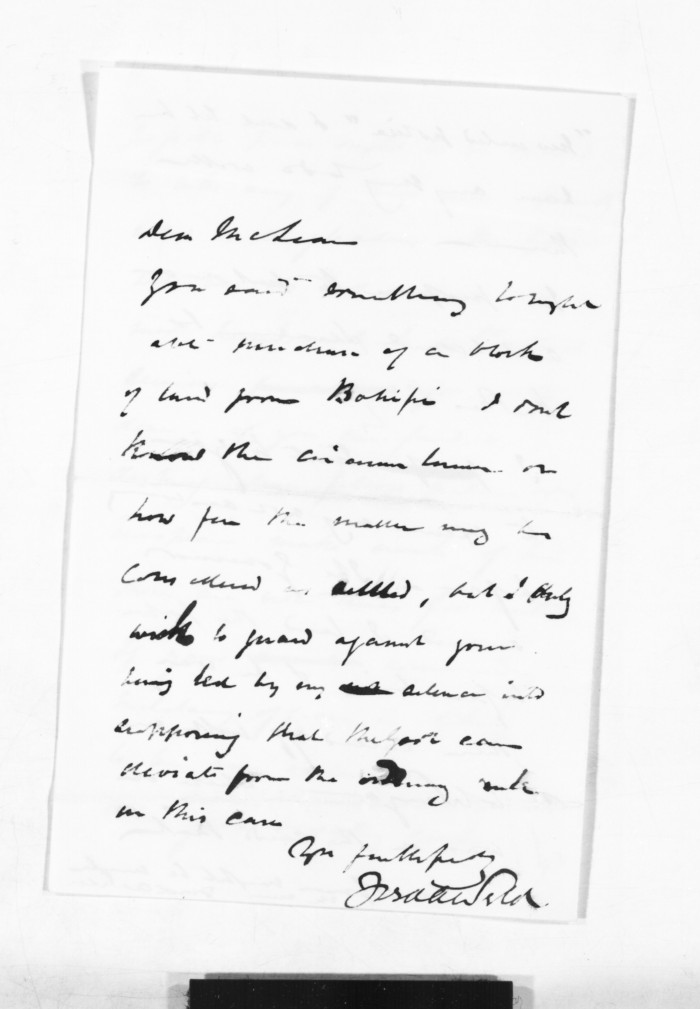 Dear McLean
You said something tonight
abt purchase of a block
of land from Bohipi I dont
know the circumstances or
how far the matter may be
considered as settled, but I only
wish to guard against your
being led by my silence into
supposing that the Govt can
deviate from the ordinary rule
in this case
Yrs faithfully
Weld